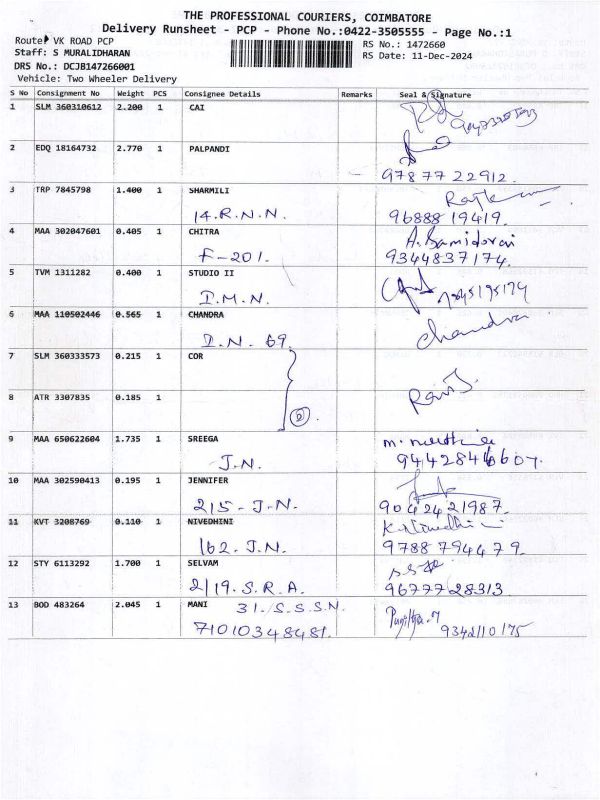 THE PROFESSIONAL COURIERS, COIMBATORE
Delivery Runsheet - PCP - Phone No.:0422-3505555 - Page No.:1
Route: VK ROAD PCP RS No.: 1472660
Staff: S MURALIDHARAN RS Date: 11-Dec-2024
DRS No.: DCJB147266001
Vehicle: Two Wheeler Delivery
S No Consignment No Weight PCS Consignee Details Remarks Seal & Signature
1 SLM 360310612 2.200 1 CAI
2 EDQ 18164732 2.770 1 PALPANDI
97877 22912.
3 TRP 7845798 1.400 1 SHARMILI
14.R.N.N. 96888 19419.
4 MAA 302047601 0.405 1 CHITRA A. Samidorai
F-201. 9344837174.
5 TVM 1311282 0.400 1 STUDIO II
I.M.N.
6 MAA 110502446 0.565 1 CHANDRA Chandra
I.N. 69.
7 SLM 360333573 0.215 1 COR
8 ATR 3307835 0.185 1
2
9 MAA 650622604 1.735 1 SREEGA
J.N.
10 MAA 302590413 0.195 1 JENNIFER
215-J.N. 9042421987.
11 KVT 3208769 0.110 1 NIVEDHINI K.Nivedhini
162.J.N. 9788794479.
12 STY 6113292 1.700 1 SELVAM
2/19.S.R.A. 9677728313
13 BOD 483264 2.045 1 MANI 31.S.S.S.N.
71010348481. 9342110175